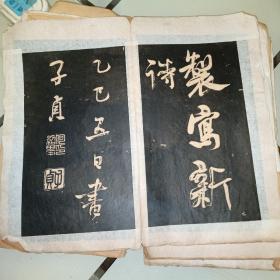 製寫新
詩
乙巳五日書
子貞